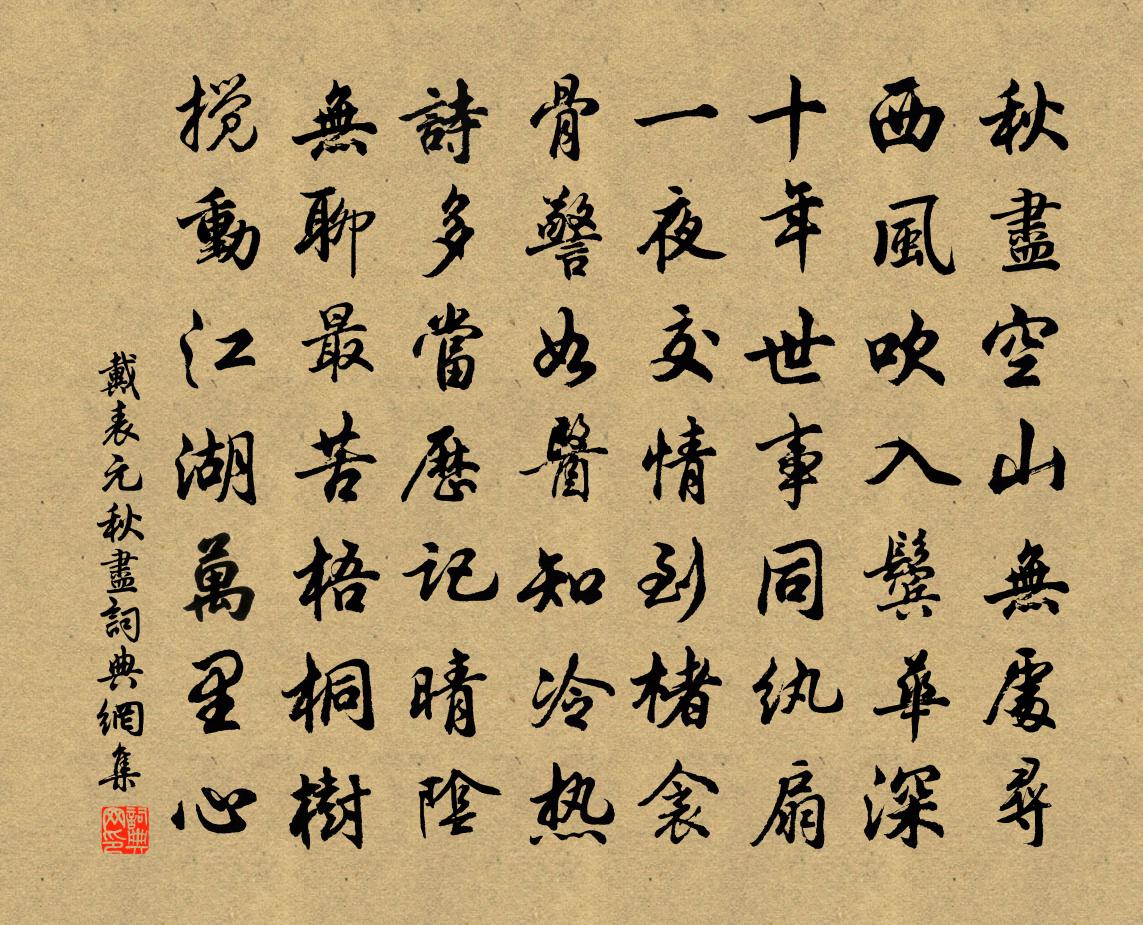 秋盡空山無處尋
西風吹入鬢華深
十年世事同紈扇
一夜交情到楮衾
骨警如醫知冷热
詩多當歷記晴陰
無聊最苦梧桐樹
攪動江湖萬里心
戴表元秋盡詞典網集
詞典网印